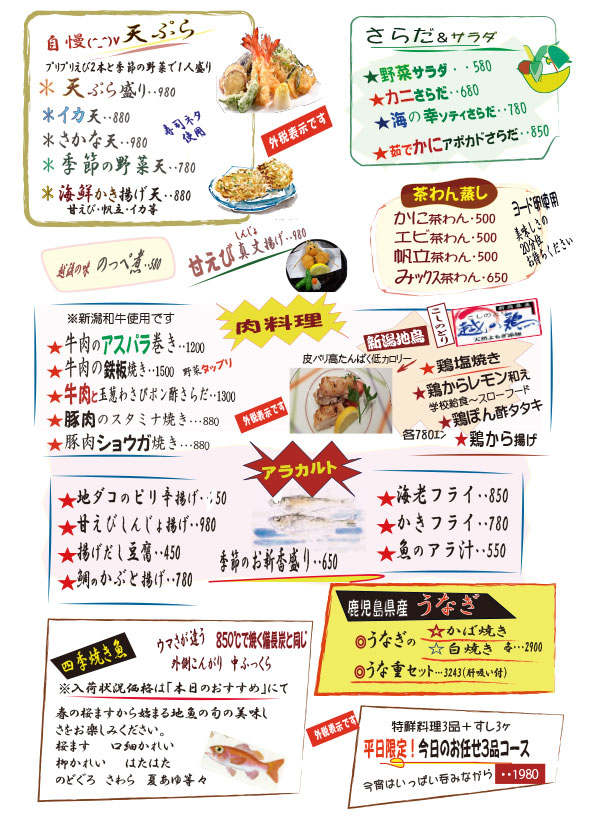 自慢(^_^)v 天ぷら
プリプリえび2本と季節の野菜で1人盛り
＊天ぷら盛り‥980
＊イカ天‥880
＊さかな天‥980
＊季節の野菜天‥780
＊海鮮かき揚げ天‥880
甘えび・帆立・イカ等
寿司ネタ
使用
外税表示です
さらだ&サラダ
★野菜サラダ‥580
★カニさらだ‥680
★海の幸ソティさらだ‥780
★茹でかにアボカドさらだ‥850
茶わん蒸し
かに茶わん・500
エビ茶わん・500
帆立茶わん・500
みックス茶わん・650
ヨード卵使用
美味しさの
20分位
お待ちください
越後の味 のっぺ煮‥580
しんじょ
甘えび真丈揚げ‥980
肉料理
※新潟和牛使用です
★牛肉のアスパラ巻き‥1200
★牛肉の鉄板焼き‥1500 野菜タップリ
★牛肉と玉葱わさびポン酢さらだ‥1300
★豚肉のスタミナ焼き…880
★豚肉ショウガ焼き…880
外税表示です
皮パリ高たんぱく低カロリー
新潟地鳥
こしのとり
越の鶏
天然よもぎ薬鶏
★鶏塩焼き
★鶏からレモン和え
学校給食〜スローフード
★鶏ぽん酢タタキ
★鶏から揚げ
各780ｴﾝ
アラカルト
★地ダコのピリ辛揚げ‥50
★甘えびしんじょ揚げ‥980
★揚げだし豆腐‥450
★鯛のかぶと揚げ‥780
季節のお新香盛り‥650
★海老フライ‥850
★かきフライ‥780
★魚のアラ汁‥550
鹿児島県産 うなぎ
◎うなぎの ☆かば焼き
☆白焼き 各…2900
◎うな重セット…3243(肝吸い付)
四季焼き魚
ウマさが違う 850℃で焼く備長炭と同じ
外側こんがり 中ふっくら
※入荷状況価格は「本日のおすすめ」にて
春の桜ますから始まる地魚の旬の美味し
さをお楽しみください。
桜ます 口細かれい
柳かれい はたはた
のどぐろ さわら 夏あゆ等々
外税表示です
特鮮料理3品＋すし3ヶ
平日限定！今日のお任せ3品コース
今宵はいっぱい呑みながら ‥1980